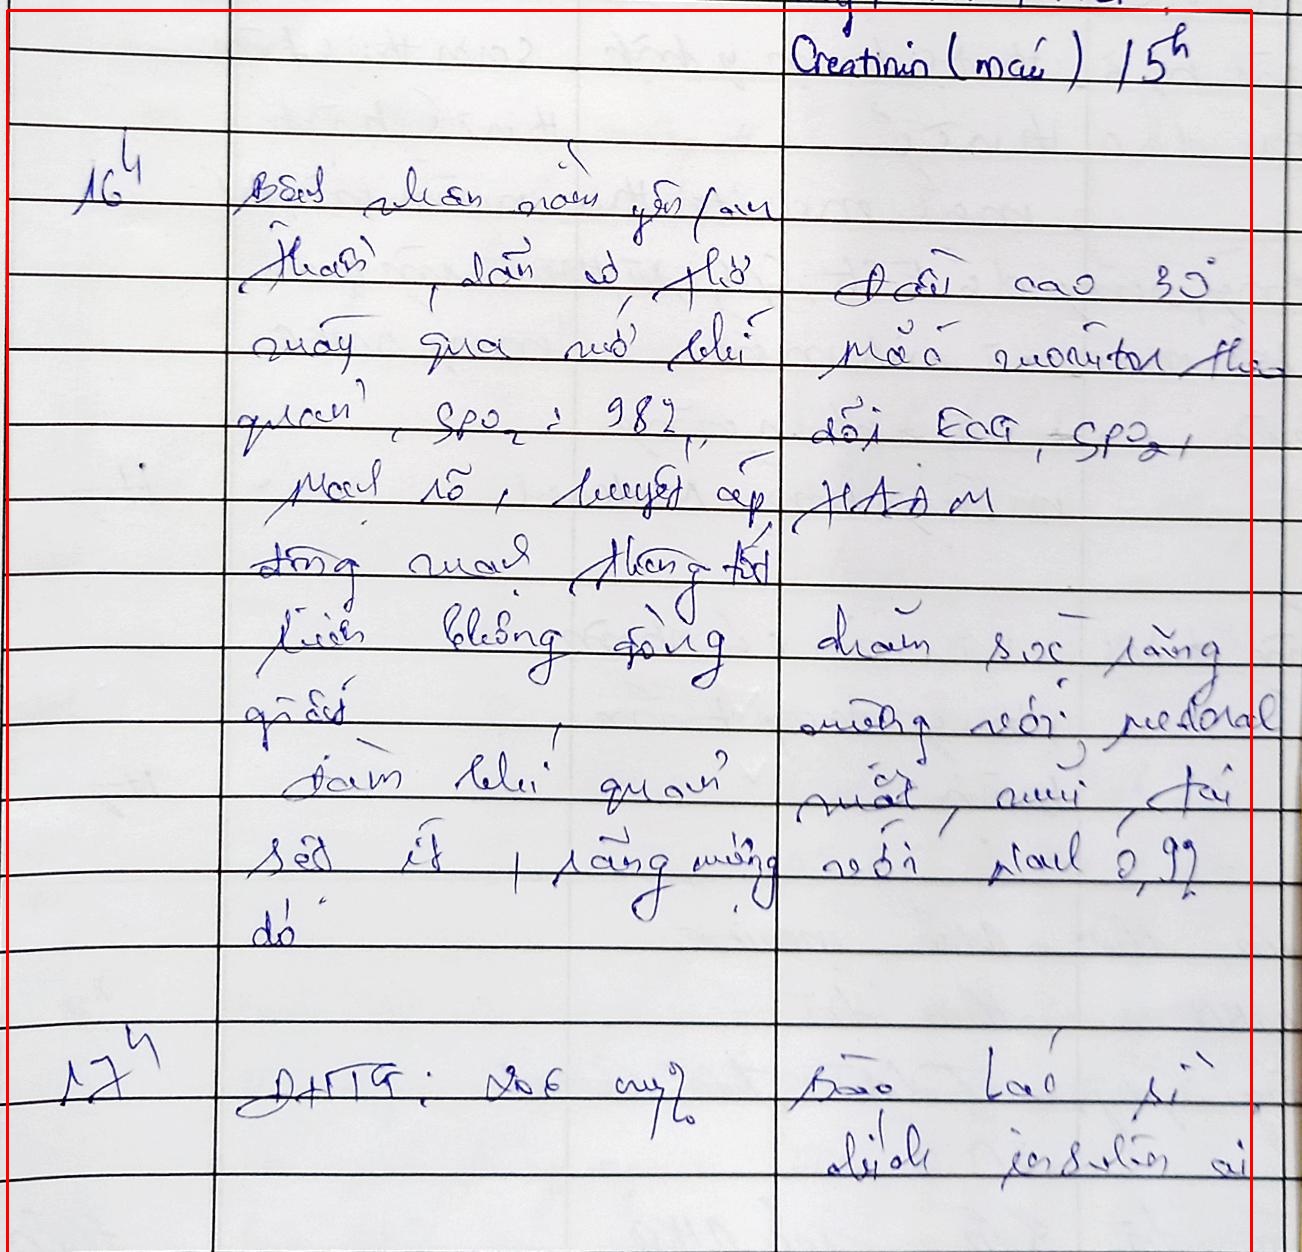 Creatinin (máu) 15h
16h
Bệnh nhân nằm yên, an
thần, dẫn lưu, thở
máy qua mở khí
quản, SPO2: 98%,
Mạch rõ, huyết áp
động mạch thông tốt
tiểu không
Đờm khí quản
sệt ít, răng miệng
dơ
Đầu cao 30°
Mắc monitor theo
dõi ECG, SPO2,
HAĐM
chăm sóc răng
miệng với medoral
mắt, mũi, tai
với Nacl 0,9%
17h
ĐHTG: 206 mg%
Báo bác sĩ
chích insulin